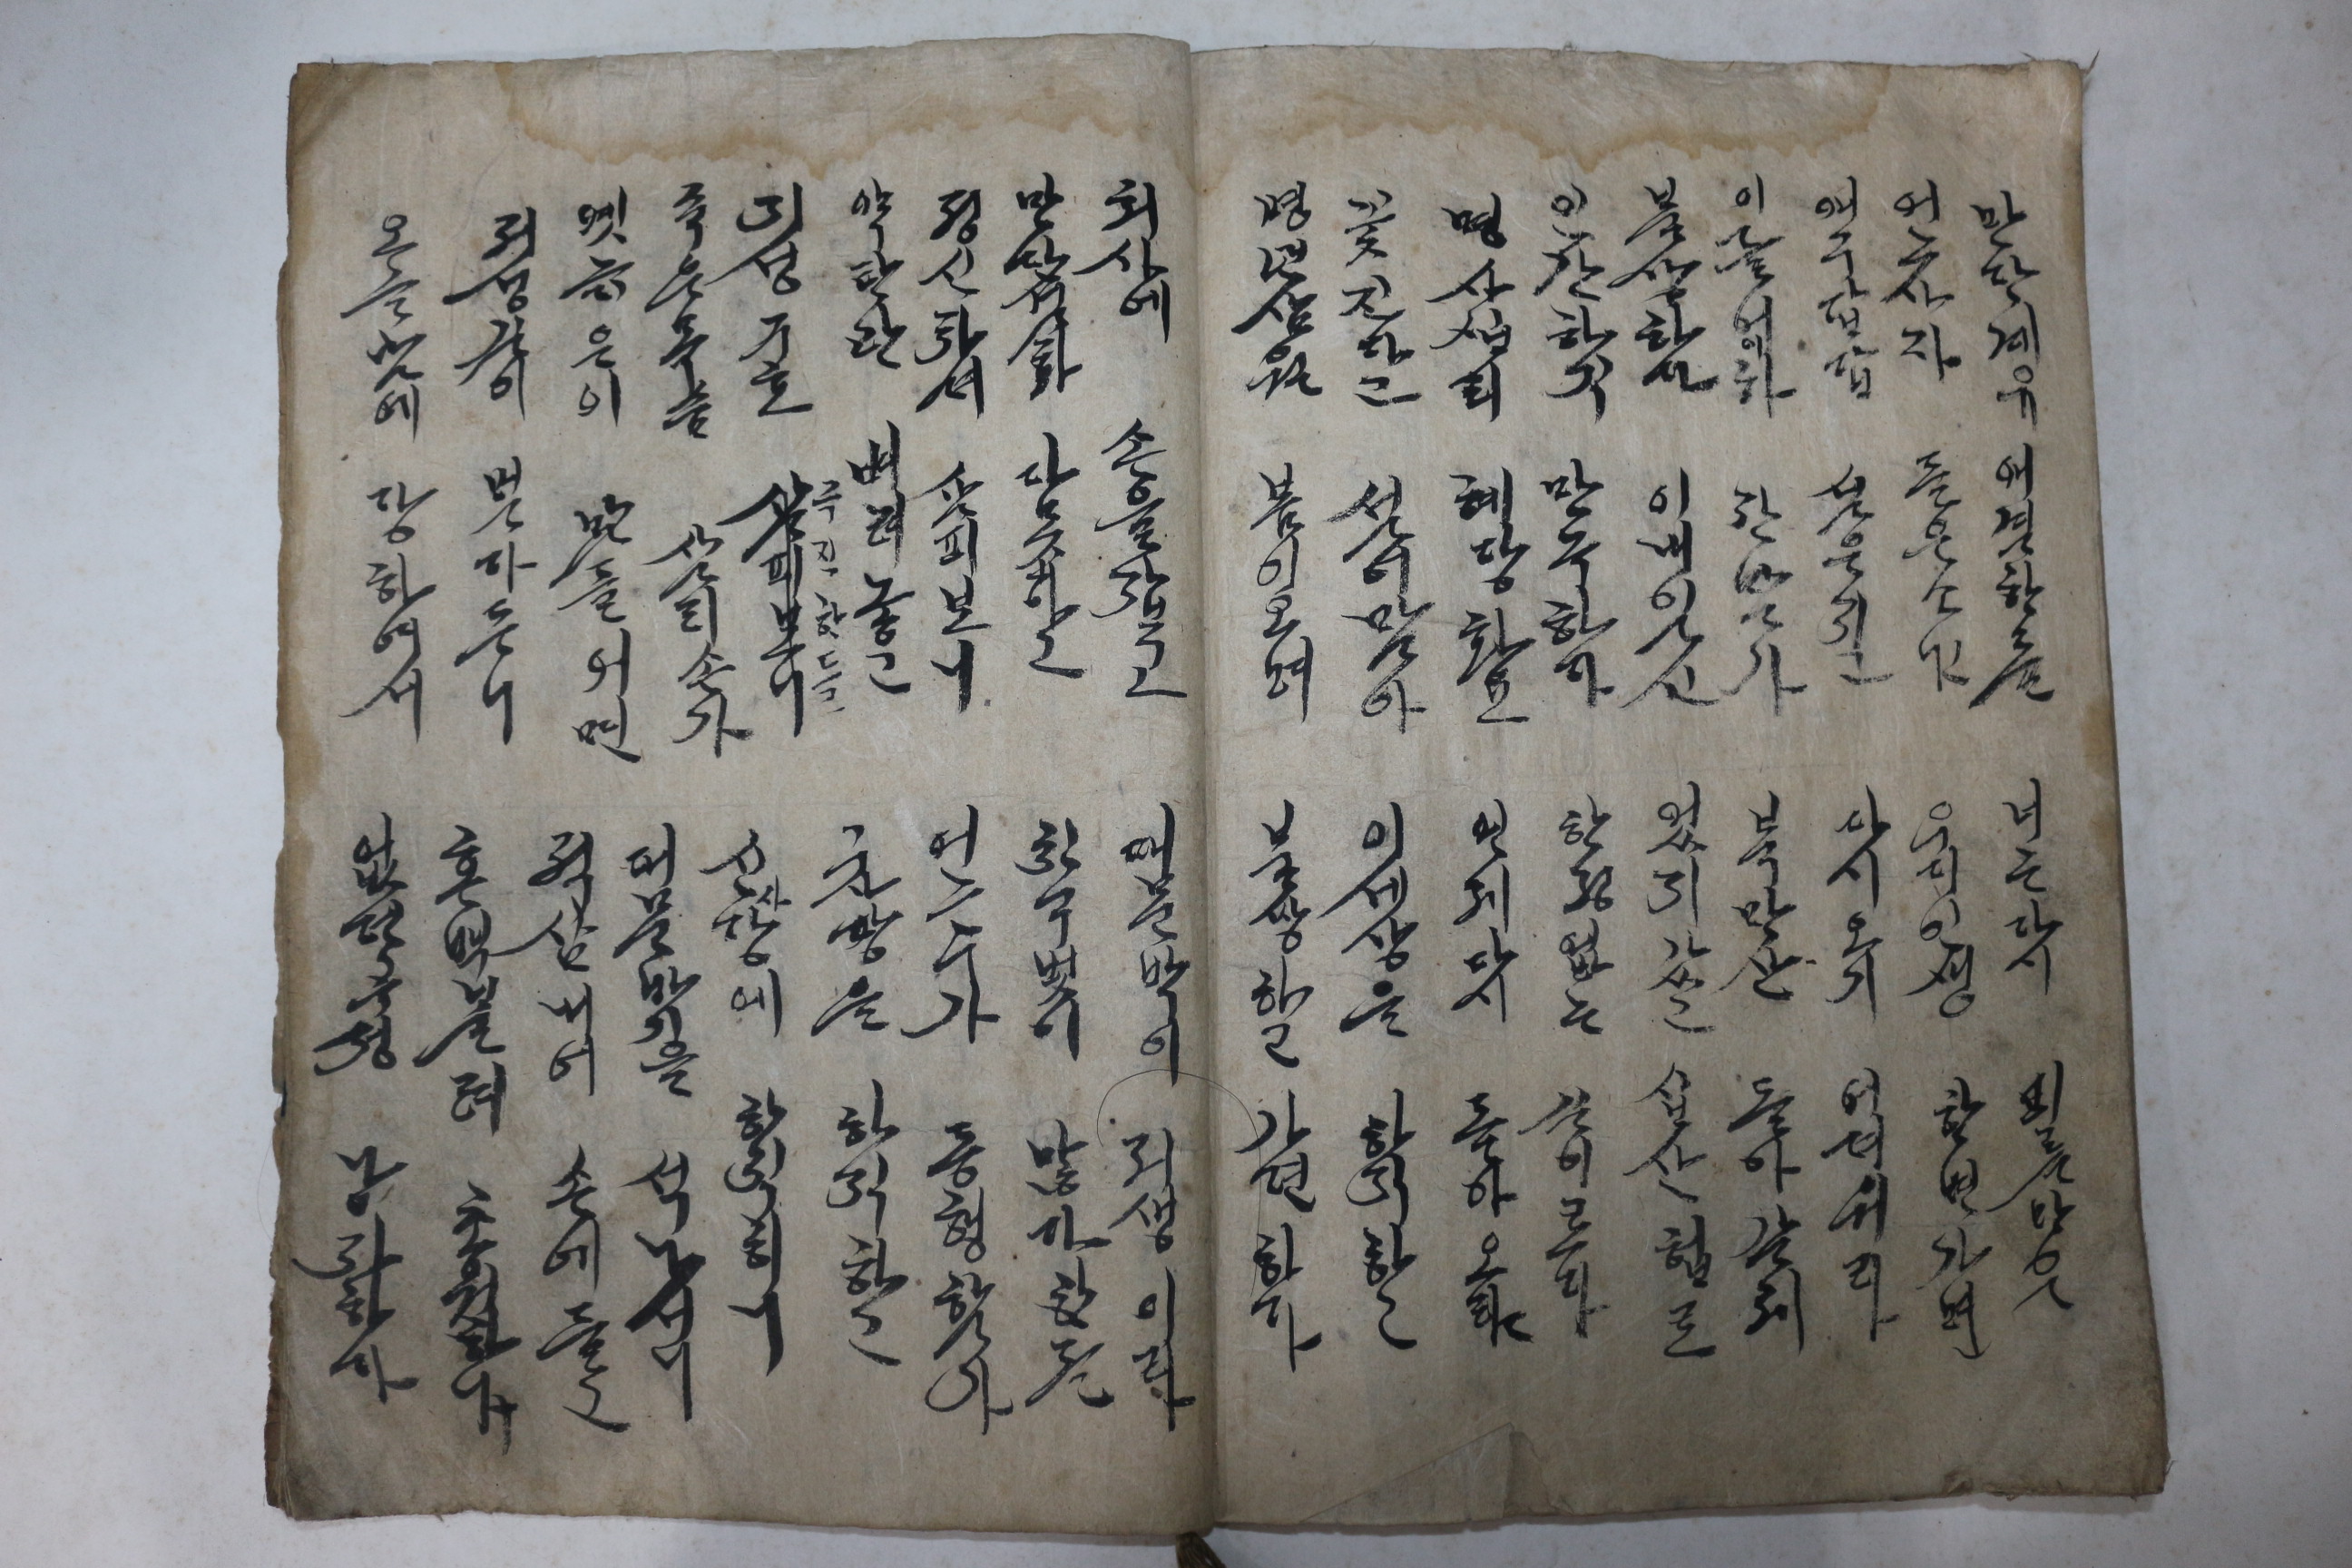 만단계유 애걸한들
어느사자 들은소냐
애구답답 설운지고
이을어이하 잔말가
불상하다 이내일신
인간하직 만극하다
명사십리 혜당화요
꽃진다고 설어말아
명년삼월 봄이오며
너는다시 피른만은
우리인생 한번가면
다시오기 어려워라
북망산 돌아갈제
었지갈고 심산험로
한정없는 길이로다
언제다시 돌아오랴
이세상을 하직하고
불쌍하고 가련하다
처사에 손을잡고
만단설화 다못하고
정신차려 살피보니
약탄관 버려놓고
지성구호 극진한들
살피보니
죽은목숨 살리손가
옛늙은이 말들어면
저성길이 멀다드니
오늘날에 당하여서
대문밖이 저생이라
친구벗이 많다한들
어느누가 동형할가
구방을 하직하고
신사당에 하직하니
대문밖을 썩나서니
적삼내어 손에들고
혼백불러 초혼하니
없던곡성 낭자하다